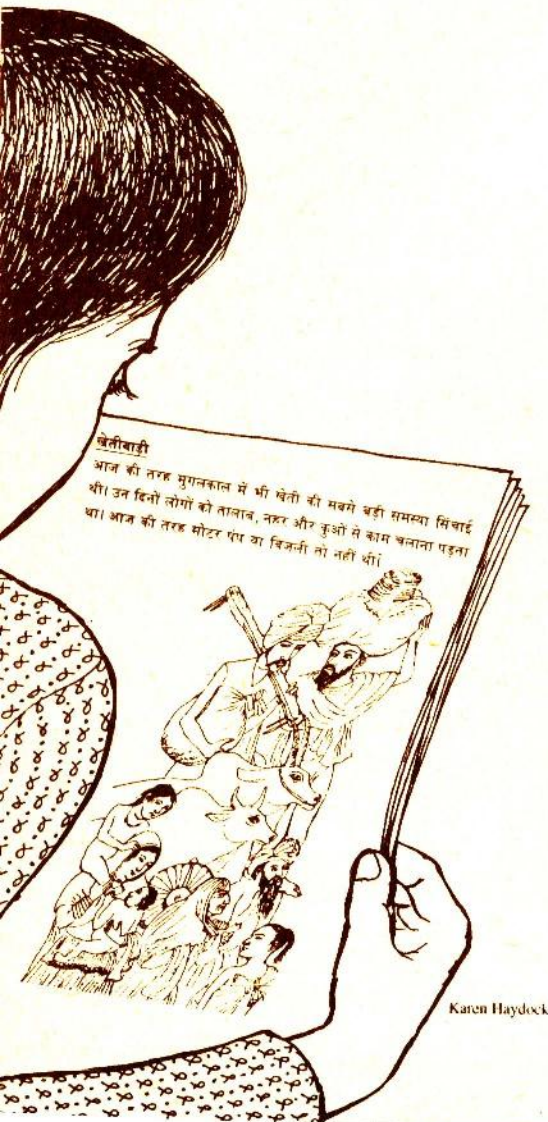 खेतीबाड़ी
आज की तरह मुगलकाल में भी खेती की सबसे बड़ी समस्या सिंचाई
थी। उन दिनों लोगों को तालाब, नहर और कुओं से काम चलाना पड़ता
था। आज की तरह मोटर पंप या बिजली तो नहीं थी।
Karen Haydock